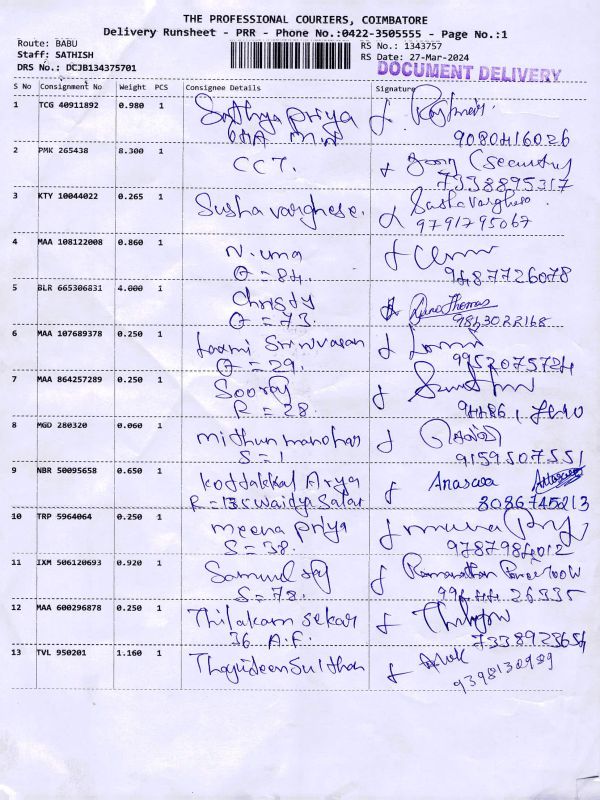 THE PROFESSIONAL COURIERS, COIMBATORE
Delivery Runsheet - PRR - Phone No.:0422-3505555 - Page No.:1
Route: BABU
Staff: SATHISH
DRS No.: DCJB134375701
RS No.: 1343757
RS Date: 27-Mar-2024
DOCUMENT DELIVERY
S No Consignment No Weight PCS Consignee Details Signature
1 TCG 40911892 0.980 1 Sathya priya
9080416026
2 PMK 265438 8.300 1 CCT. (Security)
7338895317
3 KTY 10044022 0.265 1 Susha varghese. Susha varghese
9791795067
4 MAA 108122008 0.860 1 N. uma
= 84. 9487726078
5 BLR 665306831 4.000 1 Christy Thomas
= 73. 9843022168
6 MAA 107689378 0.250 1 Laxmi Srinivasan
= 29. 9952075724
7 MAA 864257289 0.250 1 Sooraj
R = 28.
8 MGD 280320 0.060 1 midhun manohar
S = 1 9159507551
9 NBR 50095658 0.650 1 kottakkal Arya Anaswa
Vaidya Salai 8086745213
10 TRP 5964064 0.250 1 meena priya
S = 38. 9787984012
11 IXM 506120693 0.920 1 Samuel
S = 78.
12 MAA 600296878 0.250 1 Thilakam sekar
36 A.F. 7338923654
13 TVL 950201 1.160 1 Thajudeen Sulthan
9398132929